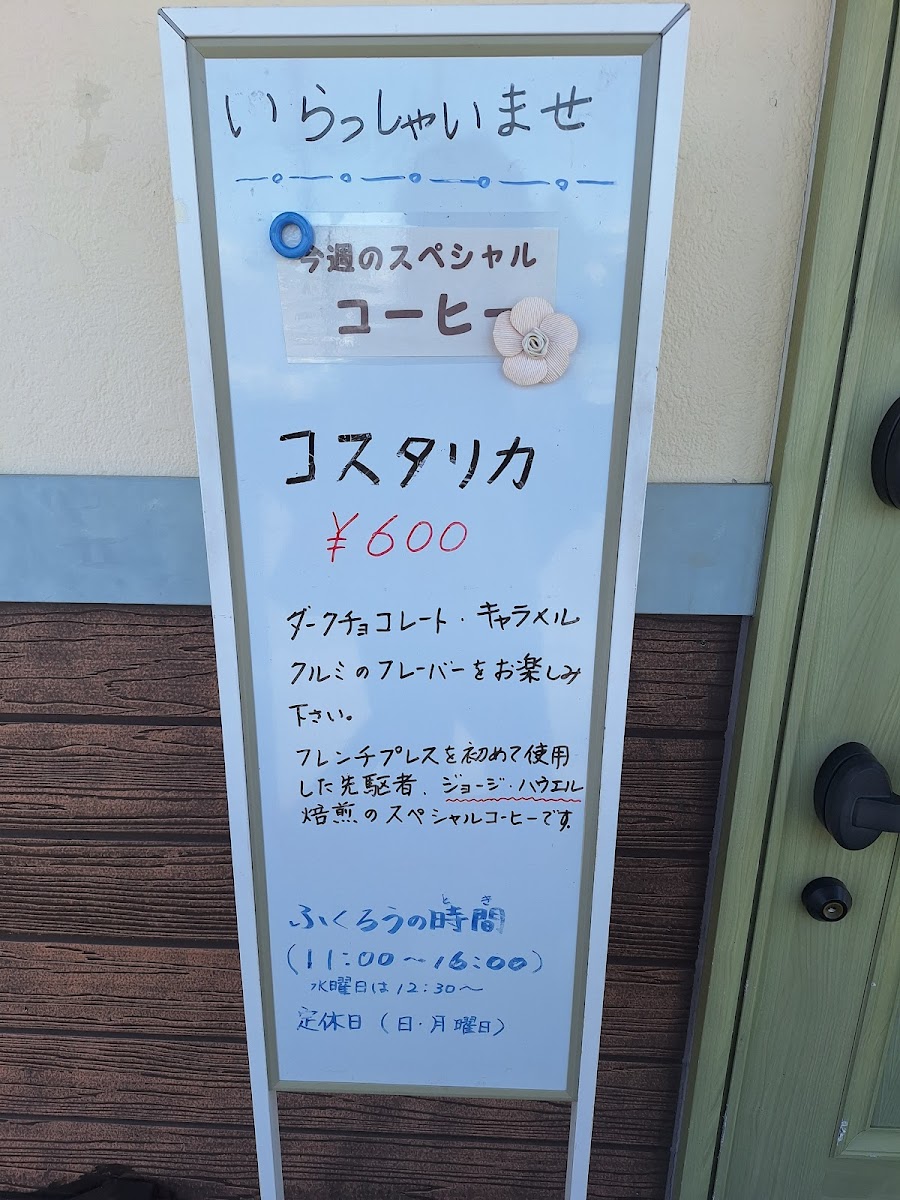 いらっしゃいませ
今週のスペシャル
コーヒー
コスタリカ
¥600
ダークチョコレート・キャラメル
クルミのフレーバーをお楽しみ
下さい。
フレンチプレスを初めて使用
した先駆者、ジョージ・ハウエル
焙煎のスペシャルコーヒーです。
とき
ふくろうの時間
(11:00~16:00)
水曜日は12:30~
定休日(日・月曜日)